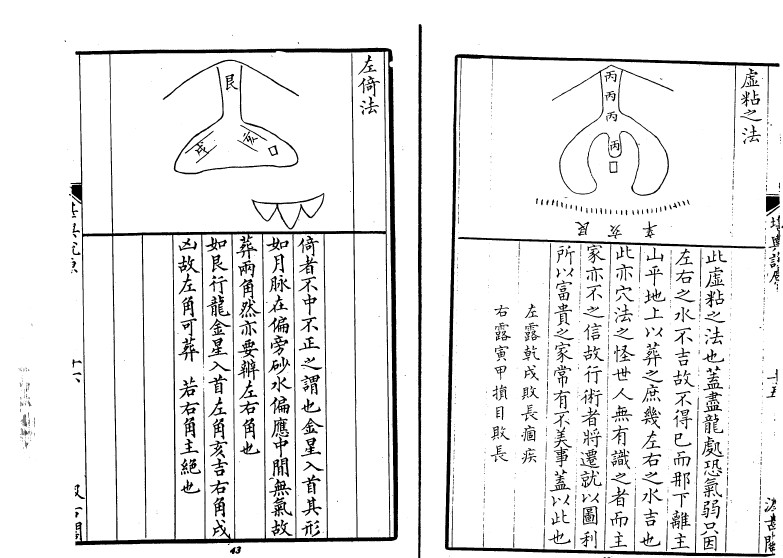 虛粘之法
丙
丙
丙
丙
辛亥艮
此虛粘之法也蓋盡龍處恐氣弱只因
左右之水不吉故不得已而那下離主
山平地上以葬之庶幾左右之水吉也
此亦穴法之怪世人無有識之者而主
家亦不之信故行術者將遷就以圖利
所以富貴之家常有不美事蓋以此也
左露乾戌敗長痼疾
右露寅甲損目敗長
左倚法
艮
亥
戌
倚者不中不正之謂也金星入首其形
如月脉在偏旁砂水偏應中間無氣故
葬兩角然亦要辨左右角也
如艮行龍金星入首左角亥吉右角戌
凶故左角可葬 若右角主絕也
43